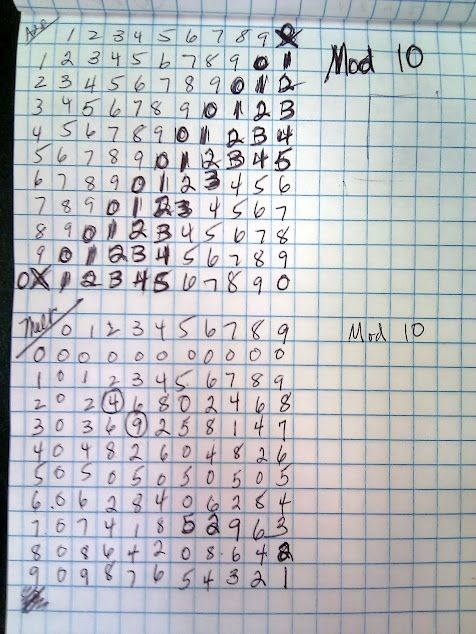 Add 1 2 3 4 5 6 7 8 9
Mod 10
1 2 3 4 5 6 7 8 9 0 1
2 3 4 5 6 7 8 9 0 1 2
3 4 5 6 7 8 9 0 1 2 3
4 5 6 7 8 9 0 1 2 3 4
5 6 7 8 9 0 1 2 3 4 5
6 7 8 9 0 1 2 3 4 5 6
7 8 9 0 1 2 3 4 5 6 7
8 9 0 1 2 3 4 5 6 7 8
9 0 1 2 3 4 5 6 7 8 9
0 1 2 3 4 5 6 7 8 9 0
Mult 0 1 2 3 4 5 6 7 8 9
Mod 10
0 0 0 0 0 0 0 0 0 0 0
1 0 1 2 3 4 5 6 7 8 9
2 0 2 4 6 8 0 2 4 6 8
3 0 3 6 9 2 5 8 1 4 7
4 0 4 8 2 6 0 4 8 2 6
5 0 5 0 5 0 5 0 5 0 5
6 0 6 2 8 4 0 6 2 8 4
7 0 7 4 1 8 5 2 9 6 3
8 0 8 6 4 2 0 8 6 4 2
9 0 9 8 7 6 5 4 3 2 1